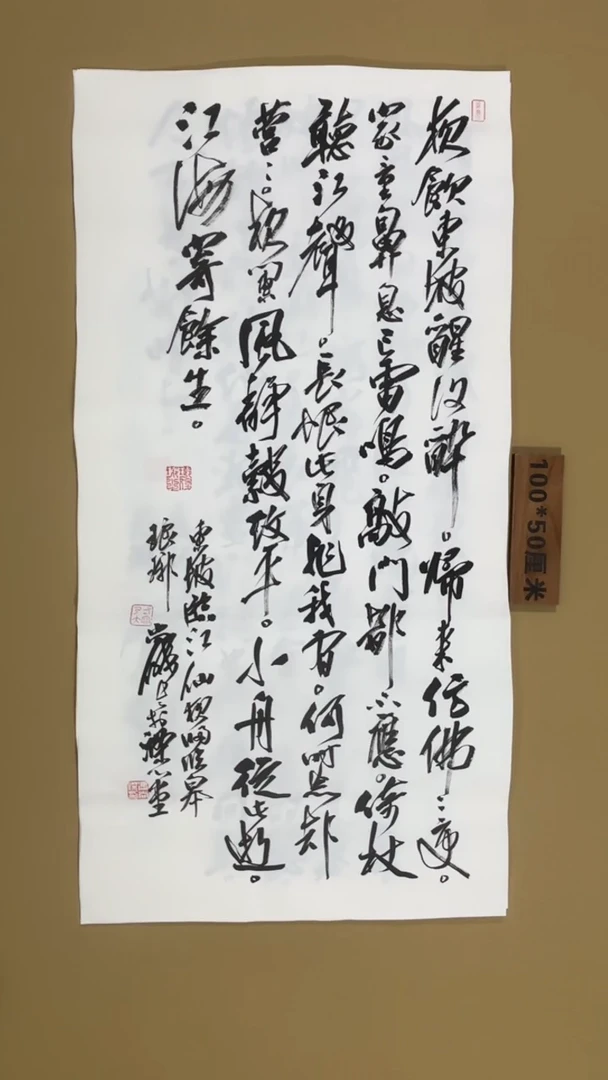 夜飲東坡醒復醉。歸來仿佛三更。
家童鼻息已雷鳴。敲門都不應。倚杖
聽江聲。長恨此身非我有。何時忘卻
營〻。夜闌風靜縠紋平。小舟從此逝。
江海寄餘生。
東坡臨江仙夜歸臨皋
琅琊
100*50厘米